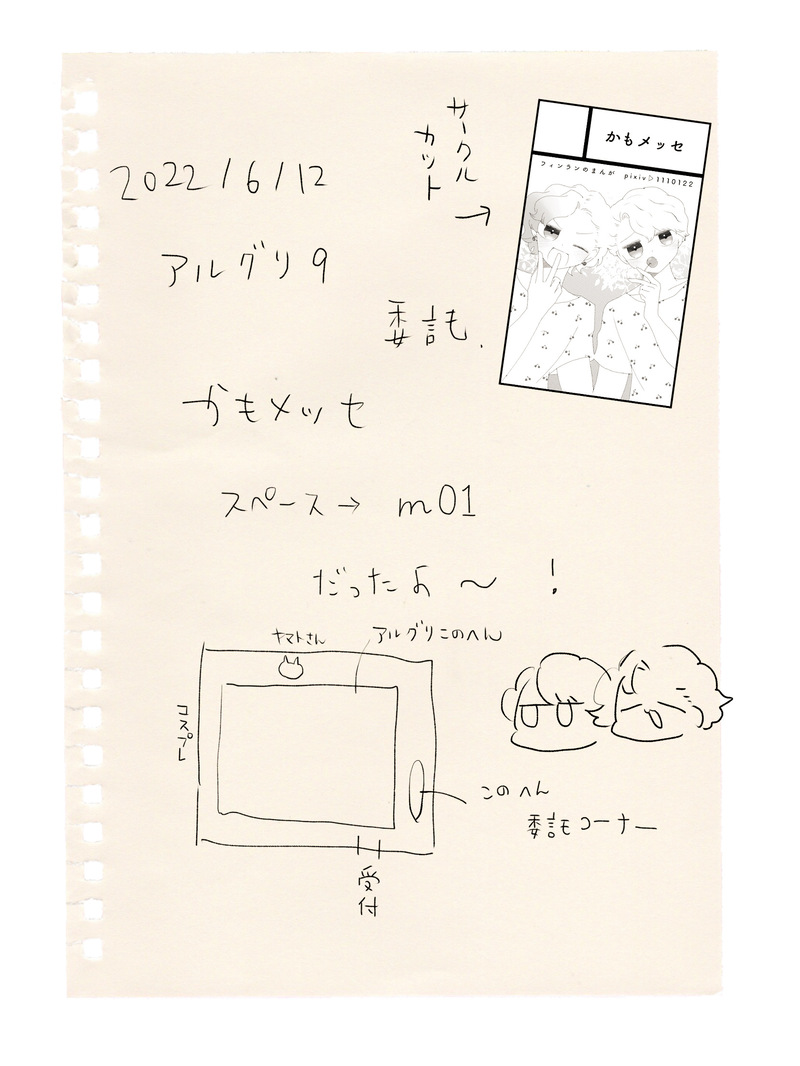 2022/6/12
サークル
カット
→
かもメッセ
フィンランのまんが pixiv▷1110122
アルグリ9
委託.
かもメッセ
スペース→ m01
だったよ〜!
ヤマトさん
アルグリこのへん
コスプレ
このへん
委託コーナー
受付